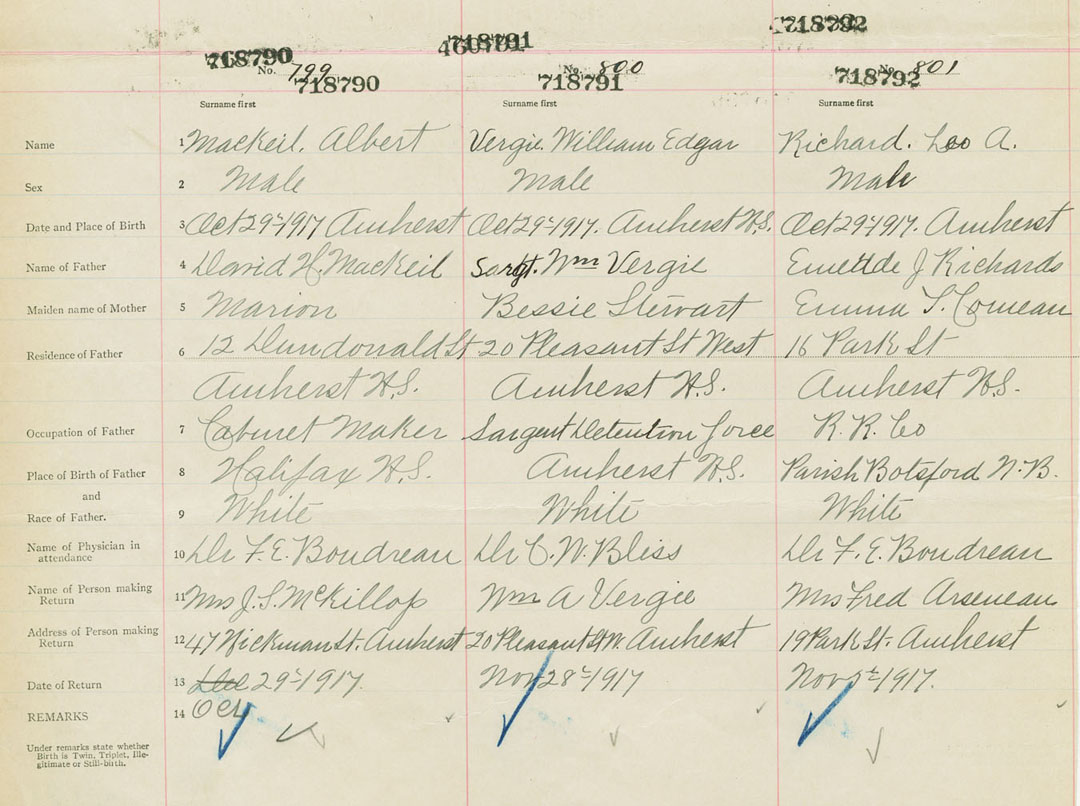 718790 718791 718792
No. 799 No. 800 No. 801
718790 718791 718792
Surname first Surname first Surname first
Name 1 MacKeil. Albert Vergie. William Edgar Richard. Leo A.
Sex 2 Male Male Male
Date and Place of Birth 3 Oct 29th 1917 Amherst Oct 29th 1917. Amherst N.S. Oct 29th 1917. Amherst
Name of Father 4 David H. MacKeil Sargt. Wm Vergie J Richards
Maiden name of Mother 5 Marion Bessie Stewart Emma S. Comeau
Residence of Father 6 12 Dundonald St 20 Pleasant St West 16 Park St
Amherst N.S. Amherst N.S. Amherst N.S.
Occupation of Father 7 Cabinet Maker Sargent Detention force R. R. Co
Place of Birth of Father 8 Halifax N.S. Amherst N.S. Parish Botsford N.B.
and
Race of Father. 9 White White White
Name of Physician in
attendance 10 Dr F. E. Boudreau Dr C. W. Bliss Dr F. E. Boudreau
Name of Person making
Return 11 Mrs J. S. McKillop Wm A Vergie Mrs Fred Arseneau
Address of Person making
Return 12 47 Hickman St. Amherst 20 Pleasant St W. Amherst 19 Park St. Amherst
Date of Return 13 Dec 29th 1917. Nov 28th 1917 Nov 5th 1917.
REMARKS 14 Oct
Under remarks state whether
Birth is Twin, Triplet, Ille-
gitimate or Still-birth.